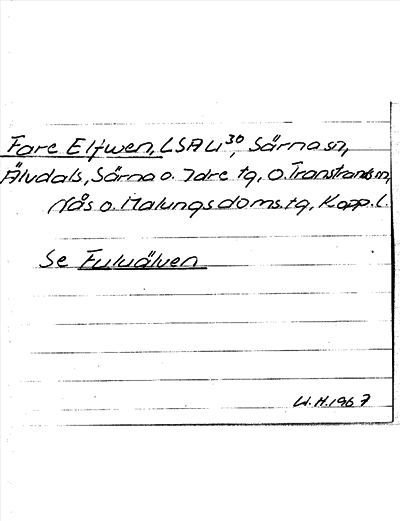 Fare Elfwen, LSA U 30, Särna sn,
Älvdals, Särna o. Idre tg, O. Transtrands sn,
Nås o. Malungs doms. tg, Kopp. l.
Se Fuluälven
W.H. 1967